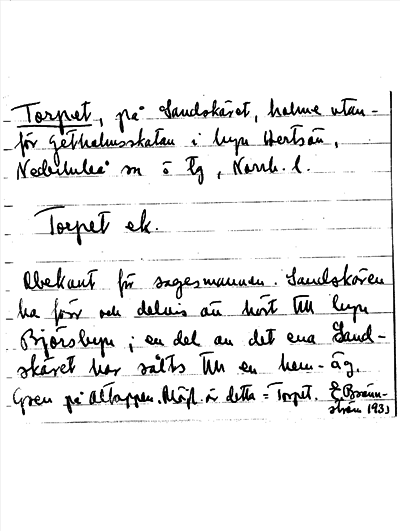 Torpet, på Sandskäret, holme utan-
för Getholmsskatan i byn Hertsön,
Nederluleå sn o tg, Norrb. l.
Torpet ek.
Obekant för sagesmannen. Sandskären
ha förr och delvis än hört till byn
Björsbyn; en del av det ena Sand-
skäret har sålts till en hem-äg.
Gren på Altappen. Möjl. är detta = Torpet. E Bränn-
ström 193